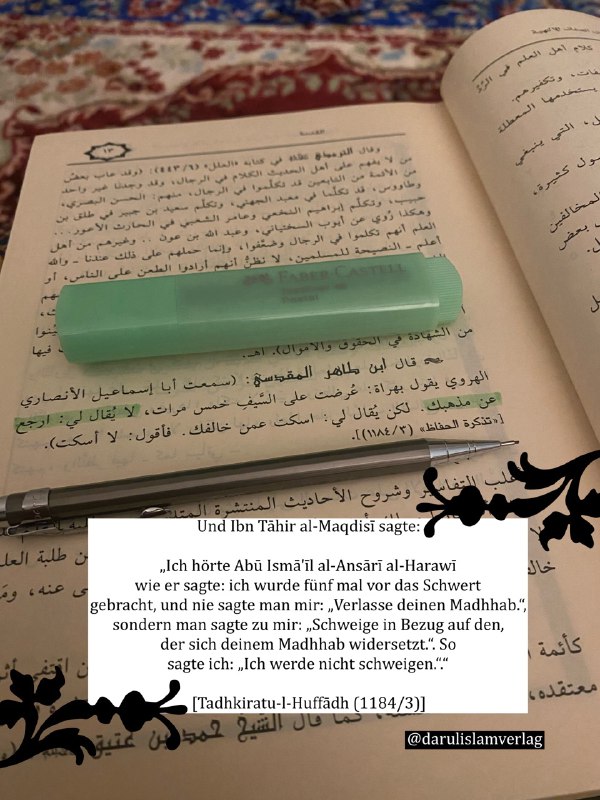 المقدمة
١٣
وقال الترمذي رحمه الله في كتابه «العلل» (٤٤٣/٦): (وقد عاب بعض
من لا يفهم على أهل الحديث الكلام في الرجال، وقد وجدنا غير واحد
من الأئمة من التابعين قد تكلّموا في الرجال، منهم: الحسن البصري،
وطاووس، قد تكلّما في معبد الجهني، وتكلّم سعيد بن جبير في طلق بن
حبيب، وتكلّم إبراهيم النخعي وعامر الشعبي في الحارث الأعور...
وهكذا رُوي عن أيوب السختياني، وعبد الله بن عون .. وغيرهم من أهل
العلم أنهم تكلموا في الرجال وضعّفوا، وإنما حملهم على ذلك عندنا - والله
أعلم - النصيحة للمسلمين، لا نظنُّ أنهم أرادوا الطعن على الناس، أو
FABER-CASTELL
من الشهادة في الحقوق والأموال). اهـ.
قال ابن طاهر المقدسي: (سمعت أبا إسماعيل الأنصاري
الهروي يقول بهراة: عُرضت على السَّيفِ خمس مرات، لا يُقال لي: ارجع
عن مذهبك. لكن يُقال لي: اسكت عمن خالفك. فأقول: لا أسكت).
[«تذكرة الحفاظ» (١١٨٤/٣)].
التفاسير وشروح الأحاديث المنتشرة
Und Ibn Tāhir al-Maqdisī sagte:
„Ich hörte Abū Ismā'īl al-Ansārī al-Harawī
wie er sagte: ich wurde fünf mal vor das Schwert
gebracht, und nie sagte man mir: „Verlasse deinen Madhhab.“,
sondern man sagte zu mir: „Schweige in Bezug auf den,
der sich deinem Madhhab widersetzt.“. So
sagte ich: „Ich werde nicht schweigen.“.“
[Tadhkiratu-l-Huffādh (1184/3)]
كما قال الشيخ حمد بن عتيق
@darulislamverlag
كلام أهل العلم في الرَّدِّ
وتكفيرهم.
يستخدمها المعطلة
التي ينبغي
كثيرة،
المخالفين
بعض
طلبة العلم
كأئمة
معتقده،